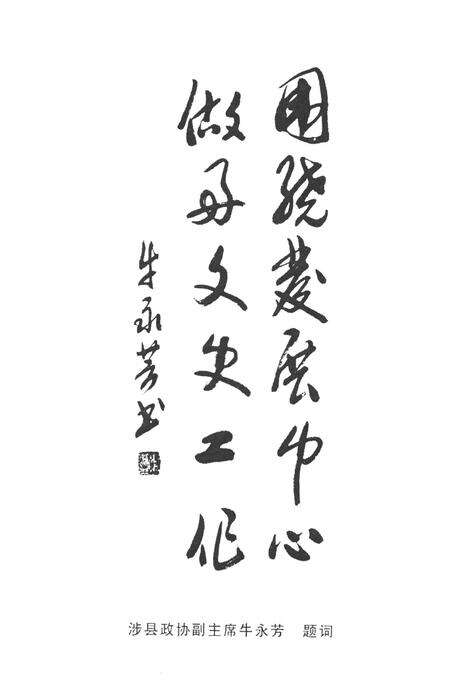 围绕发展中心
做好文史工作
牛永芳书
涉县政协副主席牛永芳 题词